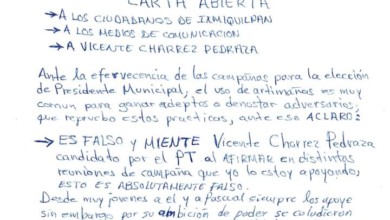 CARTA ABIERTA
→ A LOS CIUDADANOS DE IXMIQUILPAN
→ A LOS MEDIOS DE COMUNICACION
→ A VICENTE CHARREZ PEDRAZA
Ante la efervecencia de las campañas para la elección
de Presidente Municipal, el uso de artimañas es muy
comun para ganar adeptos o denostar adversarios,
que repruebo estas practicas, ante ese ACLARO:
→ ES FALSO y MIENTE Vicente Charrez Pedraza
candidato por el PT al AFIRMAR en distintas
reuniones de campaña que yo lo estoy apoyando,
ESTO ES ABSOLUTAMENTE FALSO.
Desde muy jovenes a el y a Pascual siempre los apoye
sin embargo por su ambición de poder se coludieron